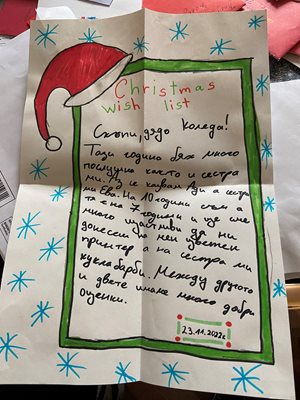 Christmas
wish list
Скъпи дядо Коледа!
Тази година бях много
послушна както и сестра
ми. Аз се казвам Ади а сестра
ми Ева. На 10 години съм а
тя е на 7 години и ще сме
много щастливи да ни
донесеш на мен цветен
принтер а на сестра ми
кукла барби. Между другото
и двете имаме много добри
оценки.
23.11.2022г.